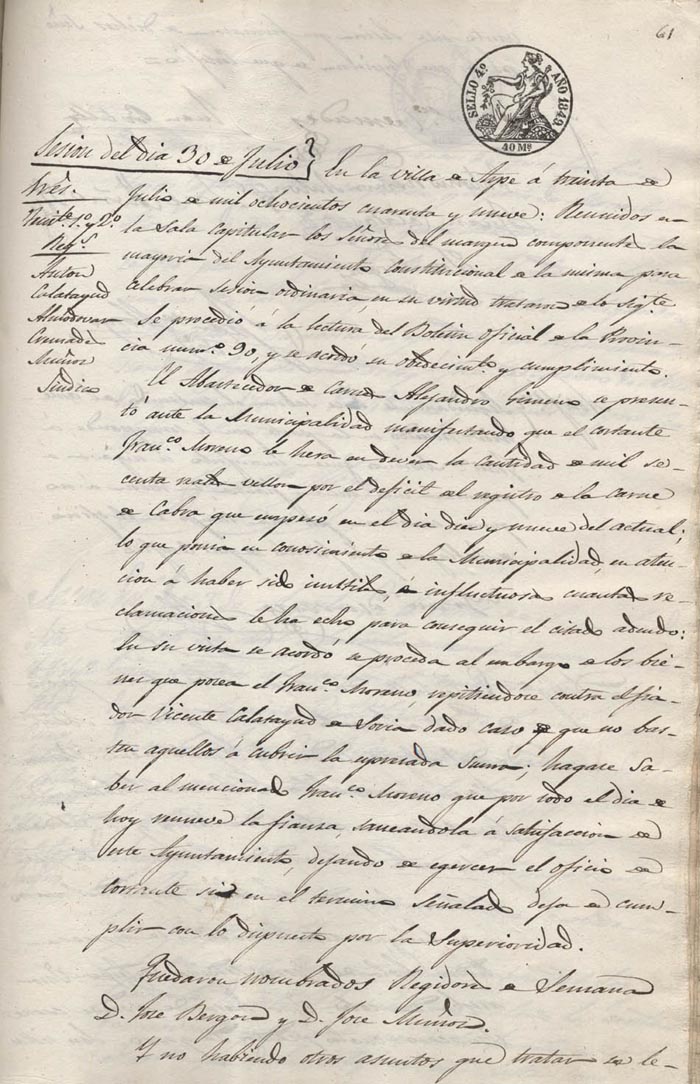 61
SELLO 4º AÑO 1849.
40 Ms
Sesion del dia 30 de Julio
Sres.
Thente 1º y 2º
Regs
Anton
Calatayud
Almodovar
Cremades
Muñoz
Sindico
En la villa de Aspe á treinta de
Julio de mil ochocientos cuarenta y nueve: Reunidos en
la Sala Capitular los Señores del margen componente la
mayoria del Ayuntamiento Constitucional de la misma para
celebrar sesion ordinaria, en su virtud trataron de lo sigte
Se procedió á la lectura del Boletin oficial de la Provin-
cia numº 90, y se acordó su obedecimto y cumplimiento.
El Abastecedor de Carnes Alejandro Gimeno se presen-
tó ante la Municipalidad manifestando que el cortante
Franco Moreno le hera en dever la cantidad de mil se-
centa reales vellon por el deficit del registro de la carne
de Cabra que empesó en el dia dies y nueve del actual;
lo que ponia en conosimiento de la Municipalidad, en aten-
cion á haber sido inutiles, é infructuosas cuantas re-
clamaciones le ha echo para conseguir el citado adeudo:
En su vista se acordó se proceda al embargo de los bie-
nes que posea el Franco Moreno, repitiendose contra el fia-
dor Vicente Calatayud de Soria dado caso de que no bas-
ten aquellos á cubrir la espresada suma; hagace sa-
ber al mencionado Franco Moreno que por todo el dia de
hoy renueve la fianza, saneandola á satisfaccion de
este Ayuntamiento, dejando de egercer el oficio de
cortante si en el termino señalado deja de cum-
plir con lo dispuesto por la Superioridad.
Quedaron nombrados Regidores de Semana
D. Jose Bergon y D. Jose Muñoz.
Y no habiendo otros asuntos que tratar se le-